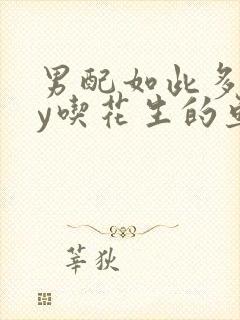 男配如此多
y喫花生的
莘狄